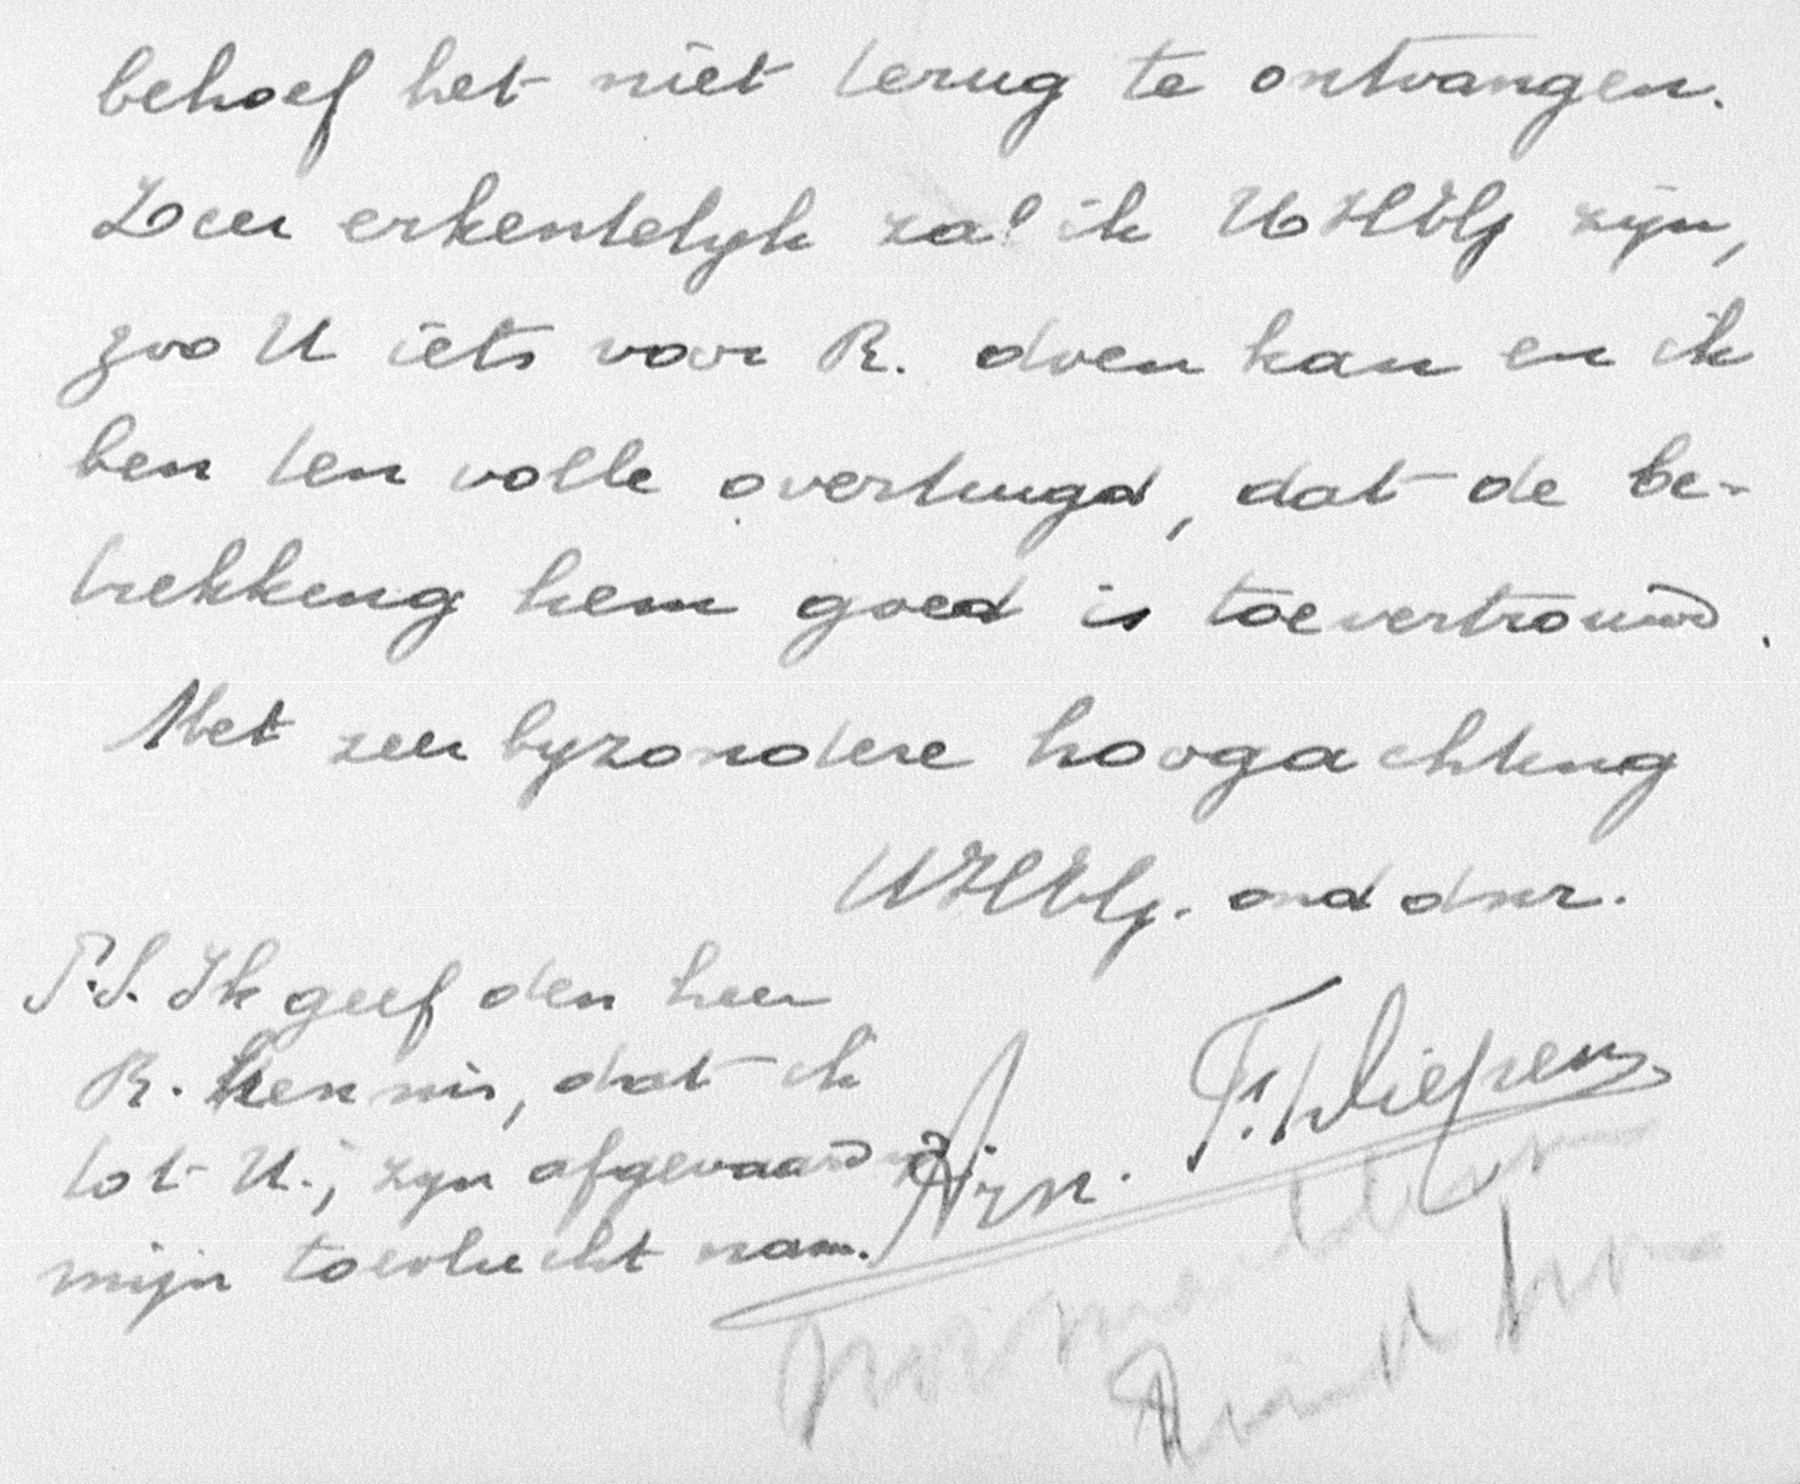 behoef het niet terug te ontvangen.
Zeer erkentelyk zal ik UHWlg zyn,
zoo U iets voor R. doen kan en ik
ben ten volle overtuigd, dat de be-
trekking hem goed is toevertrouwd.
Met zeer byzondere hoogachting
UHWlg. ond dnr.
P.S. Ik geef den heer
R. kennis, dat ik
tot U., zyn afgevaard
mijn toevlucht nam.
Arn. F. Diepen